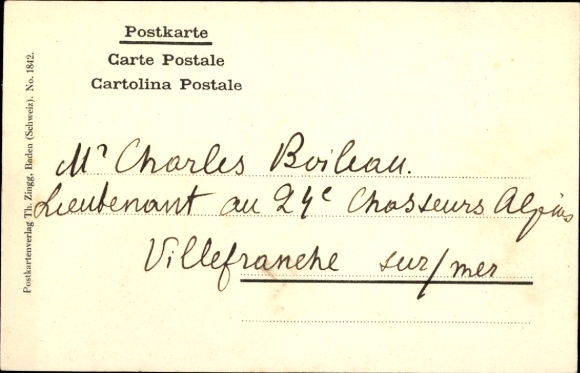 Postkarte
Carte Postale
Cartolina Postale
Mr Charles Boileau.
Lieutenant au 24e Chasseurs Alpins
Villefranche sur/mer
Postkartenverlag Th. Zingg, Baden (Schweiz). No. 1842.